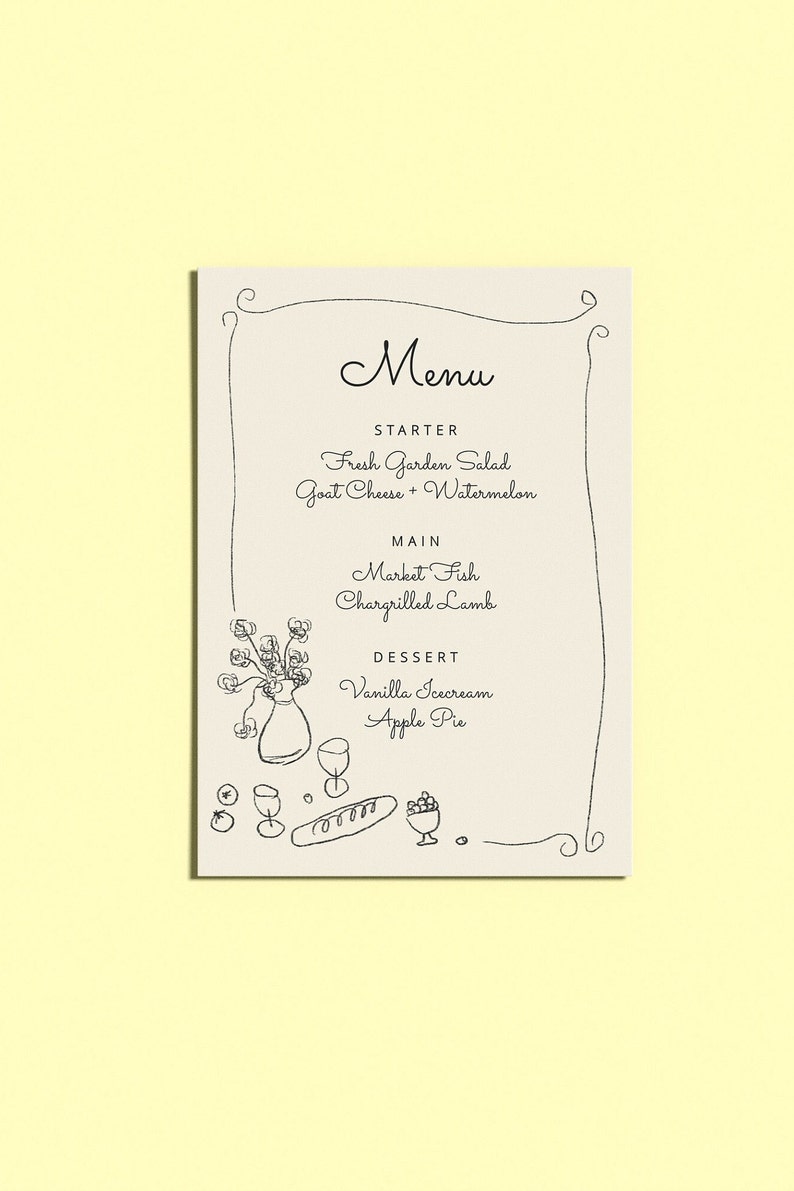 Menu
STARTER
Fresh Garden Salad
Goat Cheese + Watermelon
MAIN
Market Fish
Chargrilled Lamb
DESSERT
Vanilla Icecream
Apple Pie